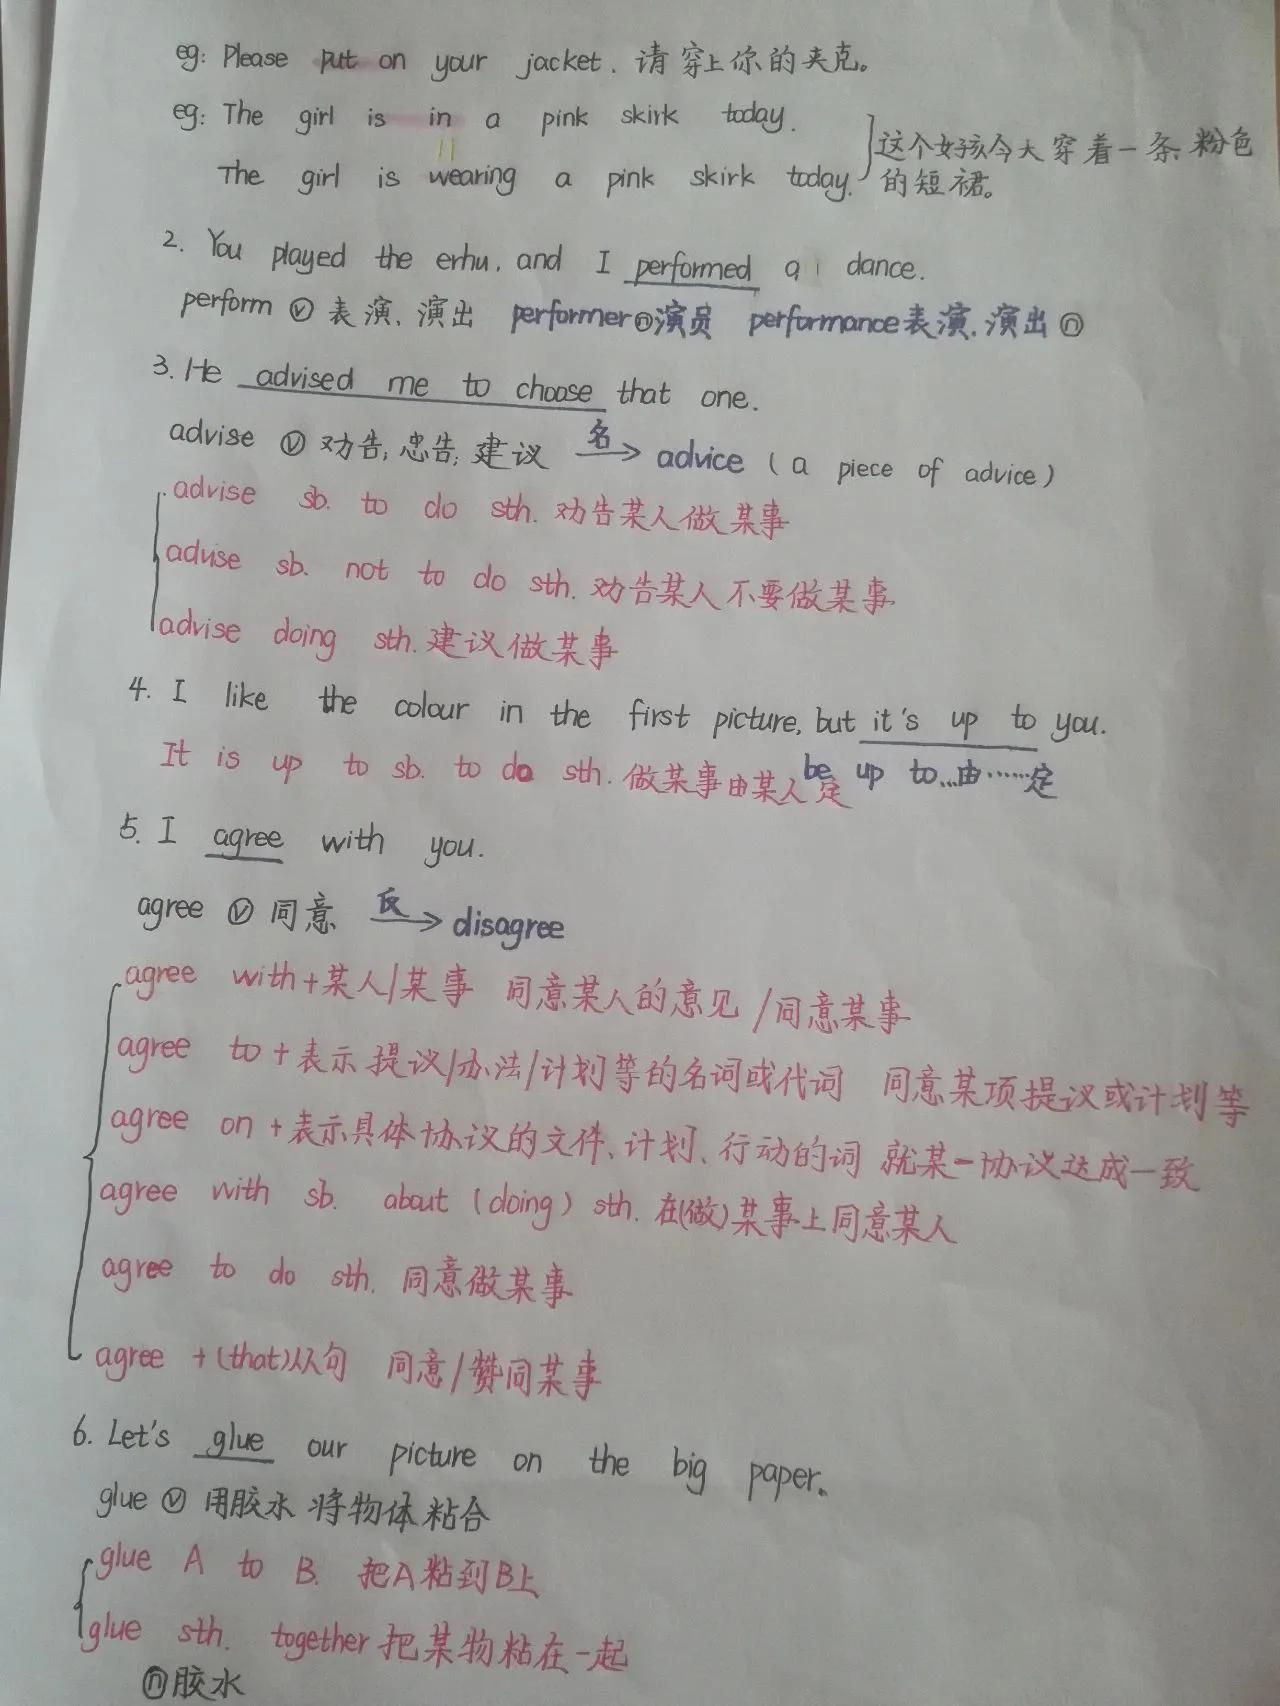 eg: Please put on your jacket. 请穿上你的夹克。
eg: The girl is in a pink skirk today.
这个女孩今天穿着一条粉色
The girl is wearing a pink skirk today.
的短裙。
2. You played the erhu, and I performed a dance.
perform ⓥ 表演、演出 performer ⓝ 演员 performance 表演、演出 ⓝ
3. He advised me to choose that one.
advise ⓥ 劝告; 忠告; 建议 名→ advice (a piece of advice)
advise sb. to do sth. 劝告某人做某事
advise sb. not to do sth. 劝告某人不要做某事
advise doing sth. 建议做某事
4. I like the colour in the first picture, but it's up to you.
It is up to sb. to do sth. 做某事由某人定 be up to...由……定
5. I agree with you.
agree ⓥ 同意 反→ disagree
agree with+某人/某事 同意某人的意见/同意某事
agree to+表示提议/办法/计划等的名词或代词 同意某项提议或计划等
agree on+表示具体协议的文件、计划、行动的词 就某一协议达成一致
agree with sb. about (doing) sth. 在(做)某事上同意某人
agree to do sth. 同意做某事
agree +(that)从句 同意/赞同某事
6. Let's glue our picture on the big paper.
glue ⓥ 用胶水将物体粘合
glue A to B. 把A粘到B上
glue sth. together 把某物粘在一起
ⓝ胶水